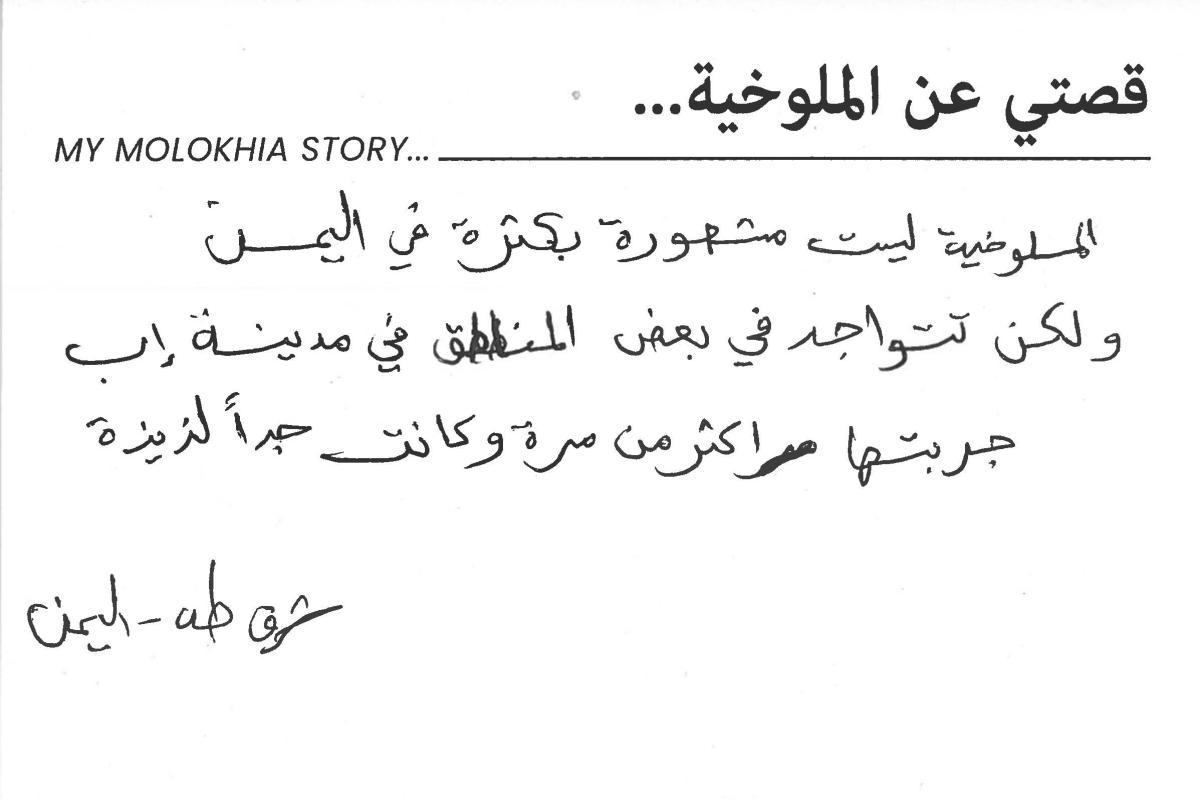 قصتي عن الملوخية...
MY MOLOKHIA STORY...
الملوخية ليست مشهورة بكثرة في اليمن
ولكن تتواجد في بعض المناطق في مدينة إب
جربتها اكثر من مرة وكانت جداً لذيذة
طه - اليمن